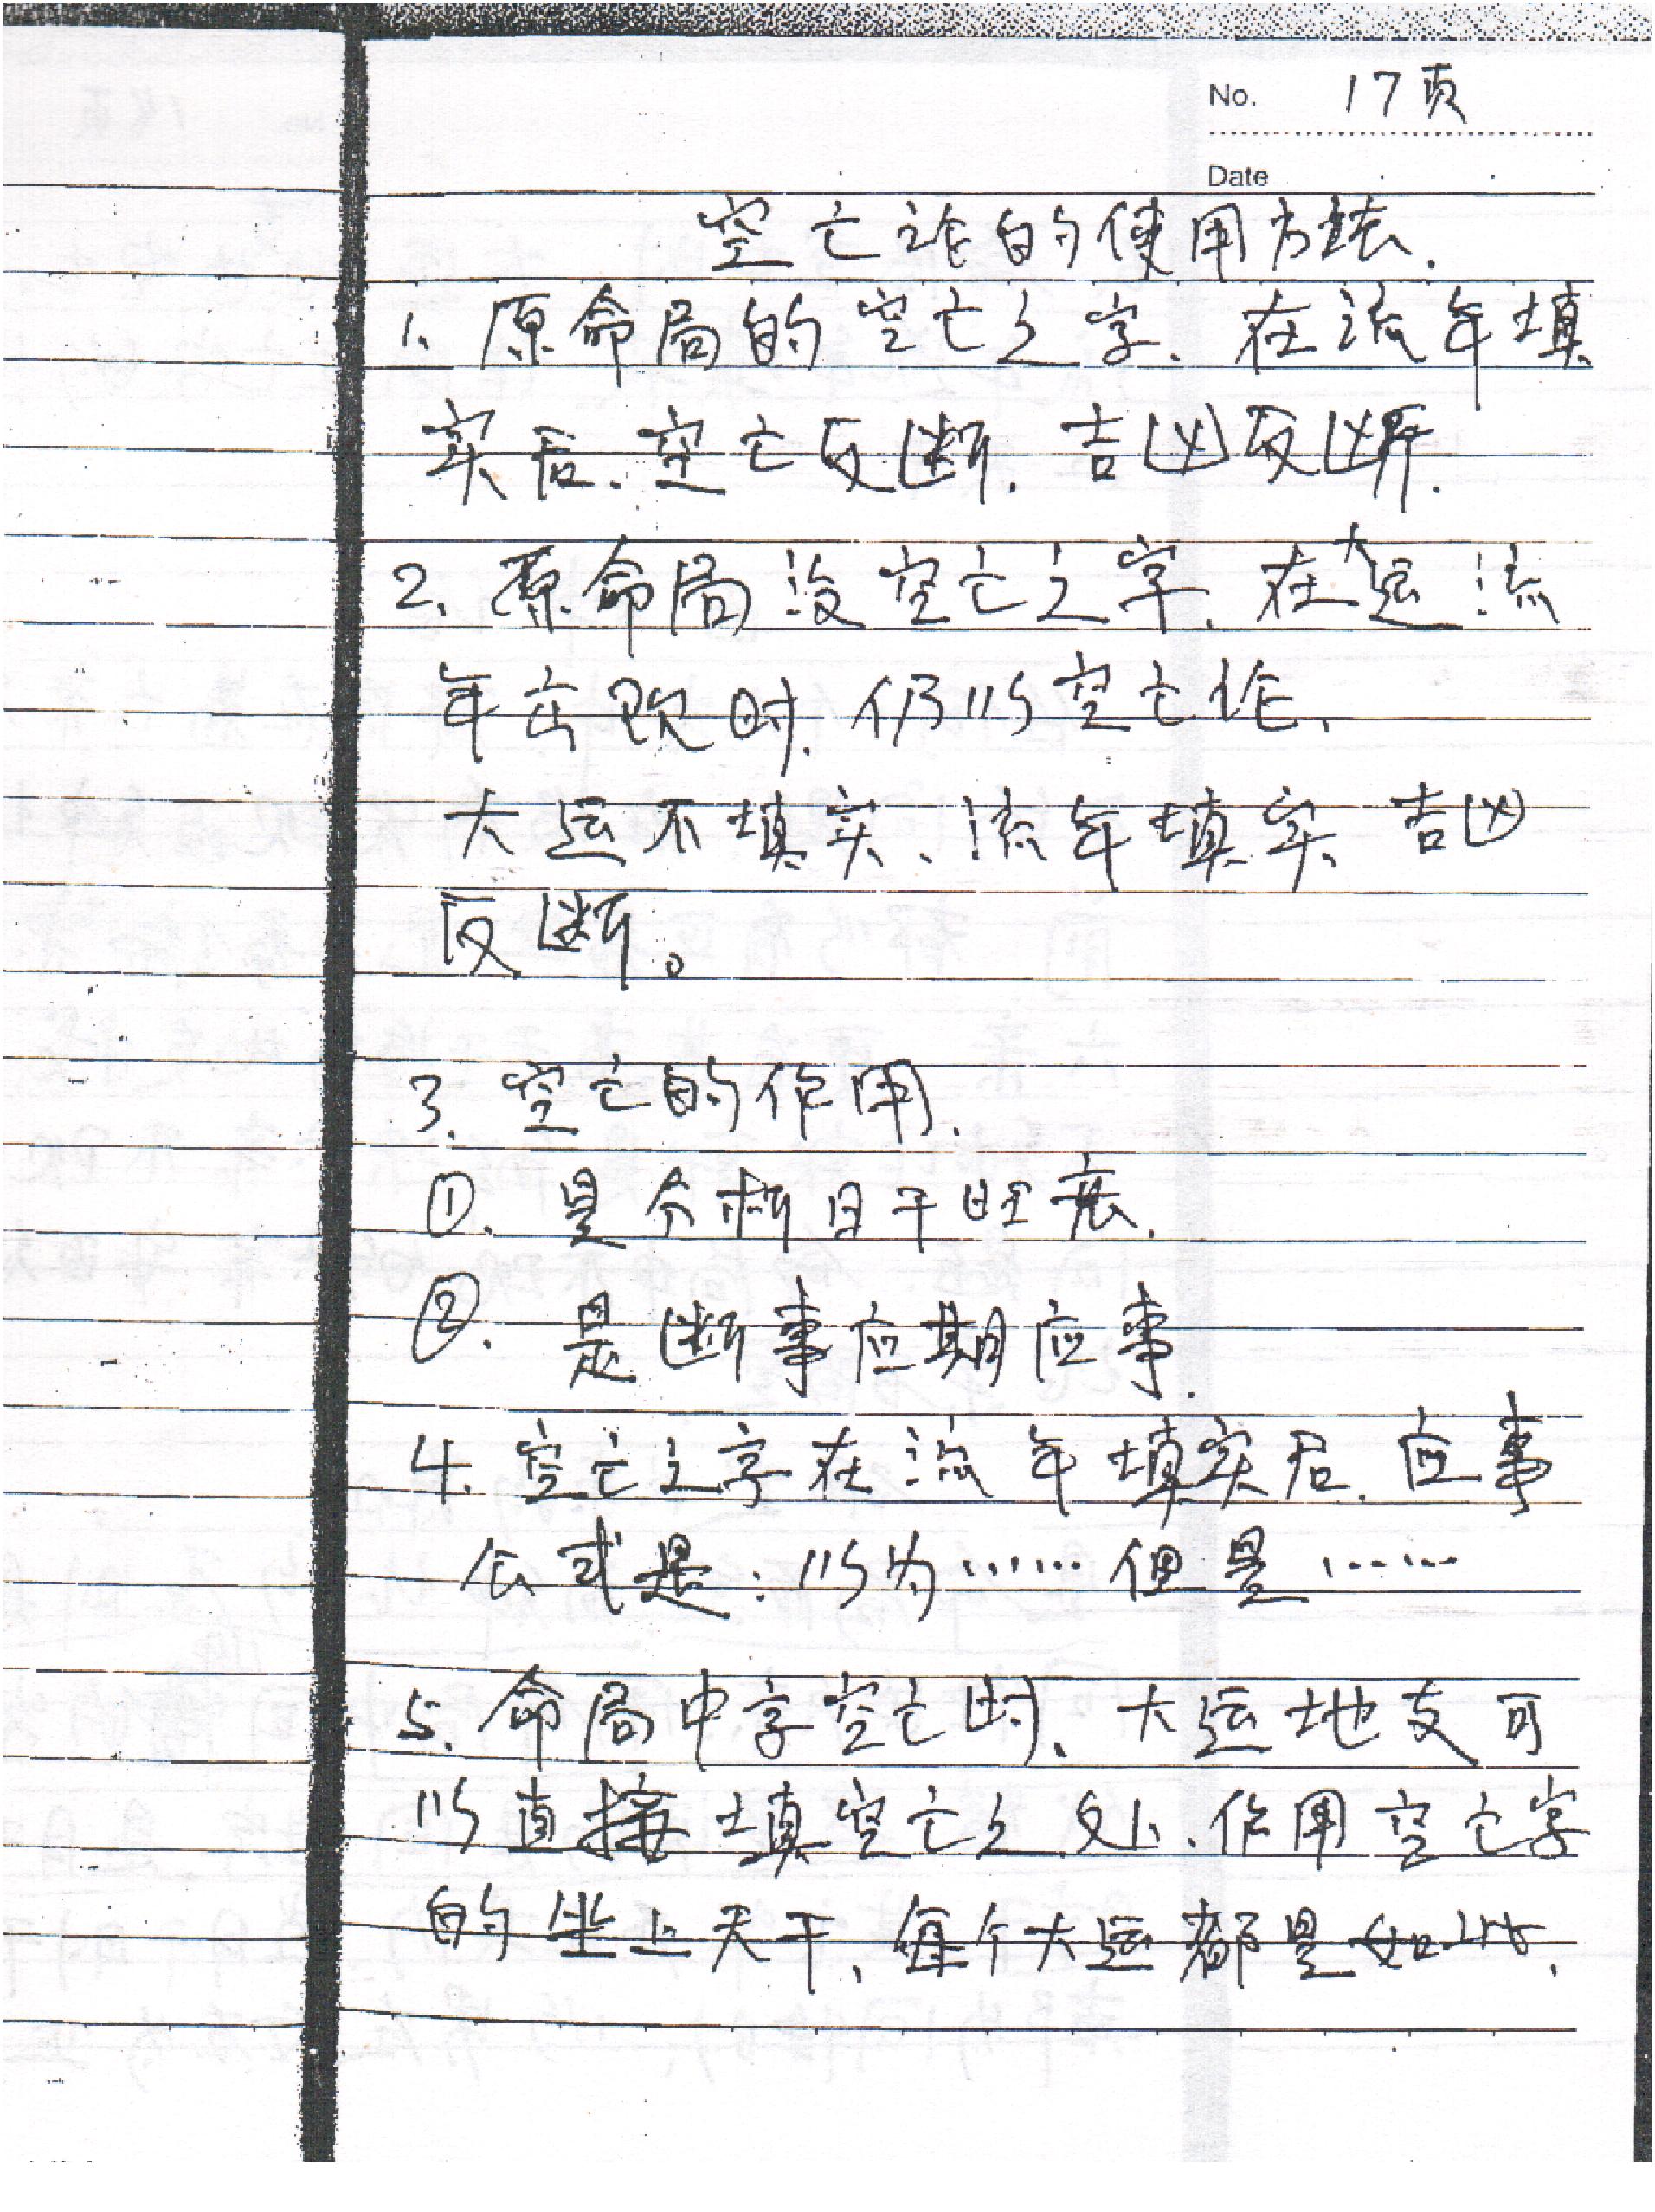 No. 17页
Date
空亡论的使用方法.
1、原命局的空亡之字、在流年填
实后.空亡反断.吉凶反断.
2、原命局没空亡之字.在大运流
年出现时.仍以空亡作、
大运不填实、流年填实、吉凶
反断。
3.空亡的作用.
①.是分析日干旺衰.
②.是断事应期应事.
4.空亡之字在流年填实后.应事
公式是:以为……但是……
5.命局中字空亡时、大运地支可
以直接填空亡之处、作用空亡字
的坐上天干、每个大运都是如此、